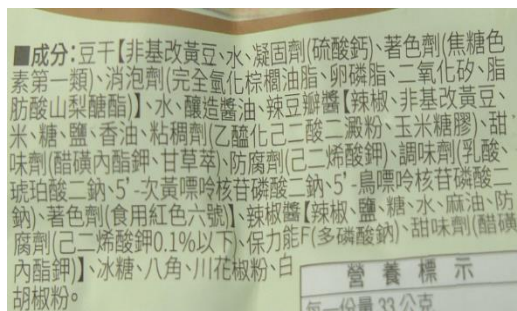 ■成分:豆干【非基改黃豆、水、凝固劑(硫酸鈣)、著色劑(焦糖色
素第一類)、消泡劑(完全氫化棕櫚油脂、卵磷脂、二氧化矽、脂
肪酸山梨醣酯)】、水、釀造醬油、辣豆瓣醬【辣椒、非基改黃豆、
米、糖、鹽、香油、粘稠劑(乙醯化己二酸二澱粉、玉米糖膠)、甜
味劑(醋磺內酯鉀、甘草萃)、防腐劑(己二烯酸鉀)、調味劑(乳酸、
琥珀酸二鈉、5'-次黃嘌呤核苷磷酸二鈉、5'-鳥嘌呤核苷磷酸二
鈉)、著色劑(食用紅色六號)】、辣椒醬【辣椒、鹽、糖、水、麻油、防
腐劑(己二烯酸鉀0.1%以下)、保力能F(多磷酸鈉)、甜味劑(醋磺
內酯鉀)】、冰糖、八角、川花椒粉、白
胡椒粉。
營養標示
每一份量 33 公克